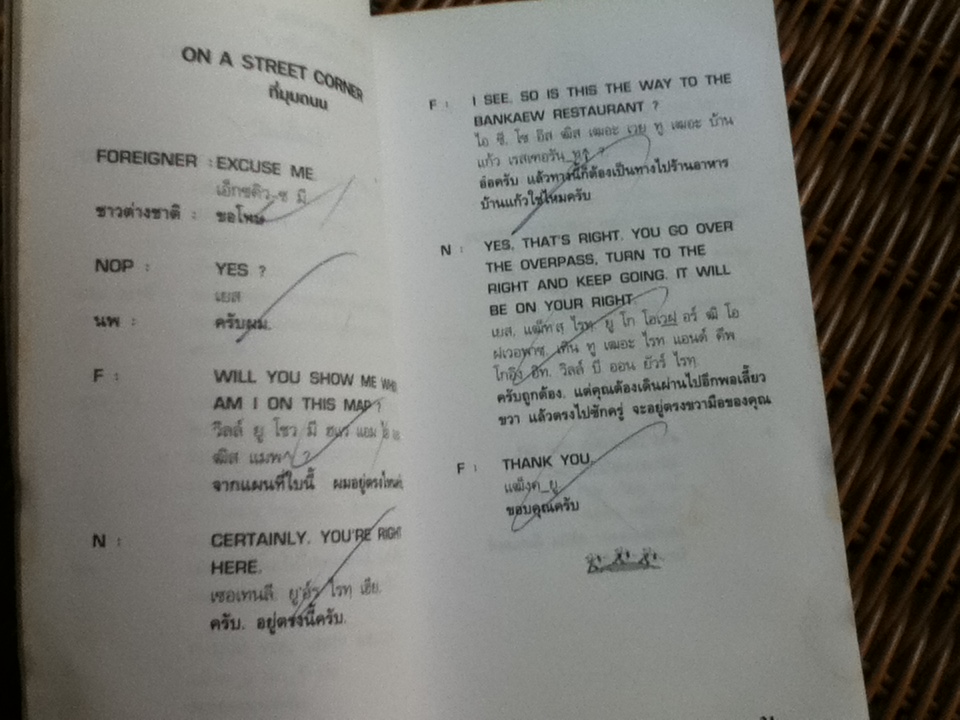 ON A STREET CORNER
ที่มุมถนน
FOREIGNER : EXCUSE ME
เอ็กซคิว-ซ มี
ชาวต่างชาติ : ขอโทษ
NOP : YES ?
เยส
นพ : ครับผม.
F : WILL YOU SHOW ME
AM I ON THIS MAP ?
วิลล์ ยู โชว มี แฮร์ แอม ไอ
ฒิส แมพฯ ?
จากแผนที่ใบนี้ ผมอยู่ตรงไหนครับ
N : CERTAINLY. YOU'RE RIGHT
HERE.
เซอเทนลี. ยู'อ์ร ไรทฺ เฮีย.
ครับ. อยู่ตรงนี้ครับ.
F : I SEE. SO IS THIS THE WAY TO THE
BANKAEW RESTAURANT ?
ไอ ซี. โซ อิส ฒิส เฒอะ เวย ทู เฒอะ บ้าน
แก้ว เรสเทอรัน ?
อ๋อครับ แล้วทางนี้ก็ต้องเป็นทางไปร้านอาหาร
บ้านแก้วใช่ไหมครับ
N : YES, THAT'S RIGHT. YOU GO OVER
THE OVERPASS, TURN TO THE
RIGHT AND KEEP GOING. IT WILL
BE ON YOUR RIGHT.
เยส, แฒ็ทสฺ ไรทฺ. ยู โก โอเวฝฺอร์ ฒิ โอ
ฝเวอพาซ, เทิน ทู เฒอะ ไรท แอนด์ คีพ
โกอิ้ง อิท. วิลล์ บี ออน ยัวร์ ไรทฺ
ครับถูกต้อง. แต่คุณต้องเดินผ่านไปอีกพอเลี้ยว
ขวา แล้วตรงไปซักครู่ จะอยู่ตรงขวามือของคุณ
F : THANK YOU.
แฒ็งคฺ_ยู
ขอบคุณครับ